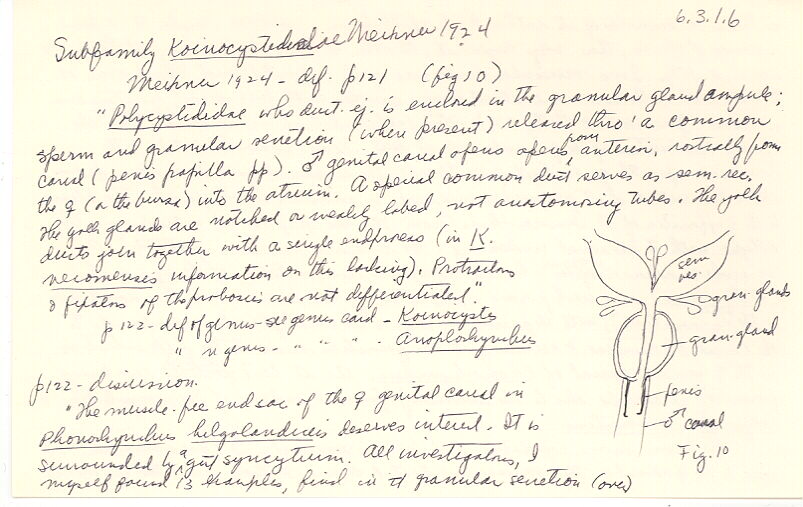 6.3.1.6
Subfamily Koinocystidinae Meixner 1924
Meixner 1924 - def. p121 (fig 10)
"Polycystididae who duct. ej. is enclosed in the granular gland ampule;
sperm and granular secretion (where present) released thro' a common
canal (penis papilla pp). ♂ genital canal opens opens from anterior, rostrally from
the ♀ (or the bursa) into the atrium. A special common duct serves as sem. rec.
The yolk glands are notched or weakly lobed, not anastomosing tubes. The yolk
ducts join together with a single endprocess (in K.
neocomensis information on this lacking). Protractors
& fixators of the proboscis are not differentiated".
p 122 - def of genus - see genus card - Koinocystis
" " genus - " " " - Anoplorhynchus
p122 - discussion.
"The muscle-free end sac of the ♀ genital canal in
Phonorhynchus helgolandicus deserves interest. It is
surrounded by a gut syncytium. All investigators, I
myself found 13 examples, find in it granular secretion (over)
sem
ves.
gran. glands
gran. gland
penis
♂ canal
Fig. 10